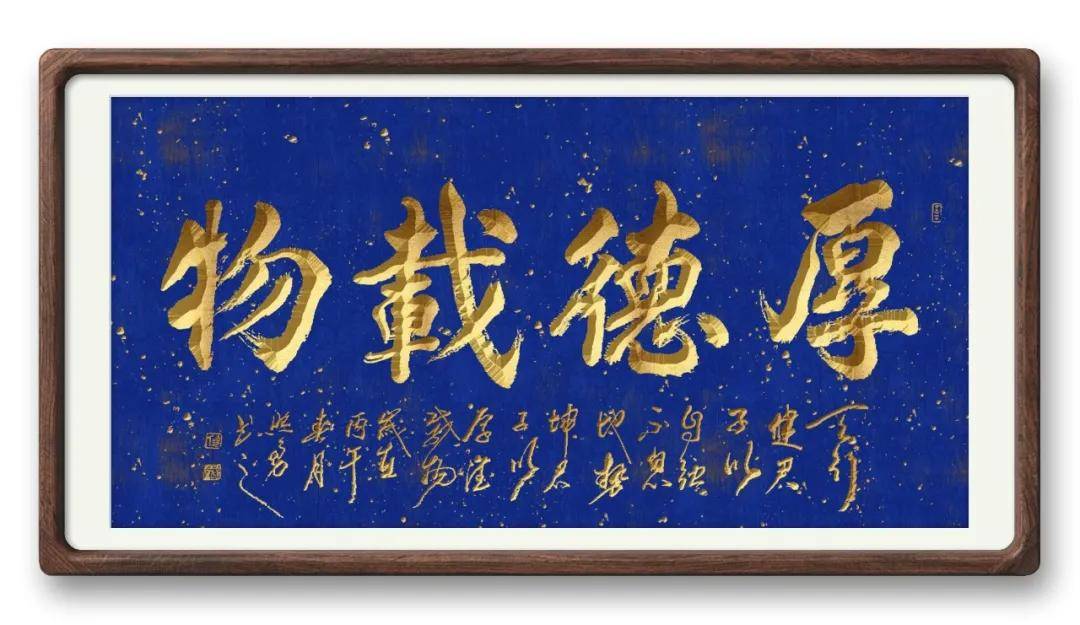 厚德載物
天行
健君
子以
自強
不息
地勢
坤君
子以
厚德
載物
歲在
丙午
春月
書之